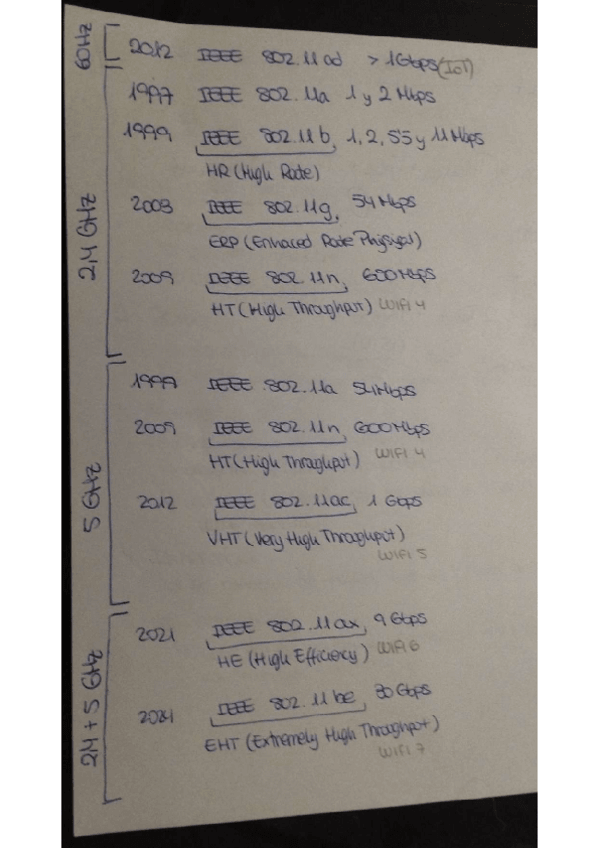 60Hz
2012 IEEE 802.11ad > 1Gbps (IoT)
2,4 GHz
1997 IEEE 802.11a 1 y 2 Mbps
1999 IEEE 802.11b, 1, 2, 5'5 y 11 Mbps
HR (High Rate)
2003 IEEE 802.11g, 54 Mbps
ERP (Enhaced Rate Physical)
2009 IEEE 802.11n, 600 Mbps
HT (High Throughput) WIFI 4
5 GHz
1999 IEEE 802.11a 54Mbps
2009 IEEE 802.11n, 600 Mbps
HT (High Throughput) WIFI 4
2012 IEEE 802.11ac, 1 Gbps
VHT (Very High Throughput)
WIFI 5
2,4 + 5 GHz
2021 IEEE 802.11ax, 9 Gbps
HE (High Efficiency) WIFI 6
IEEE 802.11be 30 Gbps
EHT (Extremely High Throughput)
WIFI 7